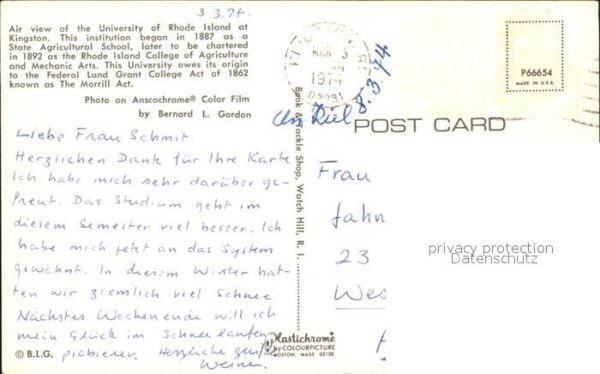 3 3.74.
Air view of the University of Rhode Island at
Kingston. This institution began in 1887 as a
State Agricultural School, later to be chartered
in 1892 as the Rhode Island College of Agriculture
and Mechanic Arts. This University owes its origin
to the Federal Land Grant College Act of 1862
known as The Morrill Act.
Photo on Anscochrome® Color Film
by Bernard L. Gordon
Liebe Frau Schmit.
Herzlichen Dank für Ihre Karte
Ich habe mich sehr darüber ge-
freut. Das Studium geht im
diesem Semester viel besser. Ich
habe mich jetzt an das System
gewöhnt. In diesem Winter hat-
ten wir ziemlich viel Schnee
Nächstes Wochenende will ich
mein Glück im Schneelaufen
probieren. Herzliche Grüße
© B.L.G.
Book & Tackle Shop, Watch Hill, R. I.
Plastichrome®
by COLOURPICTURE
BOSTON, MASS. 02130
MAR 5
1974
8.3.74
POST CARD
P66654
MADE IN U.S.A.
Frau
Jahn
23
Wes
privacy protection
Datenschutz